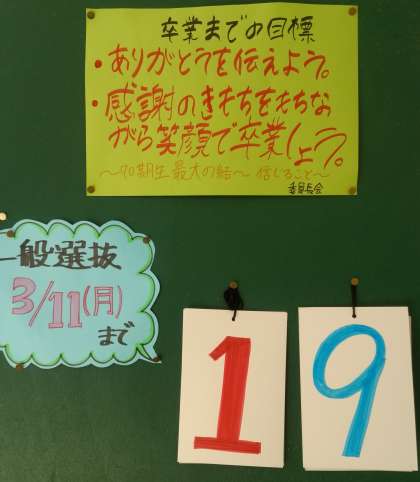 卒業までの目標
・ありがとうを伝えよう。
・感謝のきもちをもちな
がら笑顔で卒業しよう。
〜70期生最大の結〜 信じること〜
委員長会
一般選抜
3/11(月)
まで
19